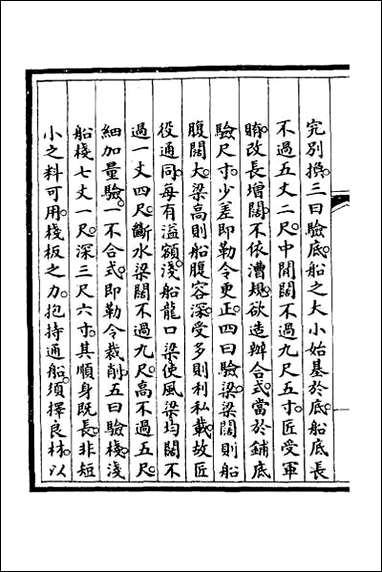 完別換三曰驗底船之大小始基於底船底長
不過五丈二尺中開闊不過九尺五寸匠受軍
賄改長增闊不依漕規欲造辦合式當於鋪底
驗尺寸少差即勒令更正四曰驗梁梁闊則船
腹闊大梁高則船腹容深受多則利私載故匠
役通同每有溢額淺船龍口梁使風梁均闊不
過一丈四尺斷水梁闊不過九尺高不過五尺
細加量驗一不合式即勒令裁削五曰驗棧淺
船棧七丈一尺深三尺六寸其順身既長非短
小之料可用棧板之力抱持通船須擇良材以